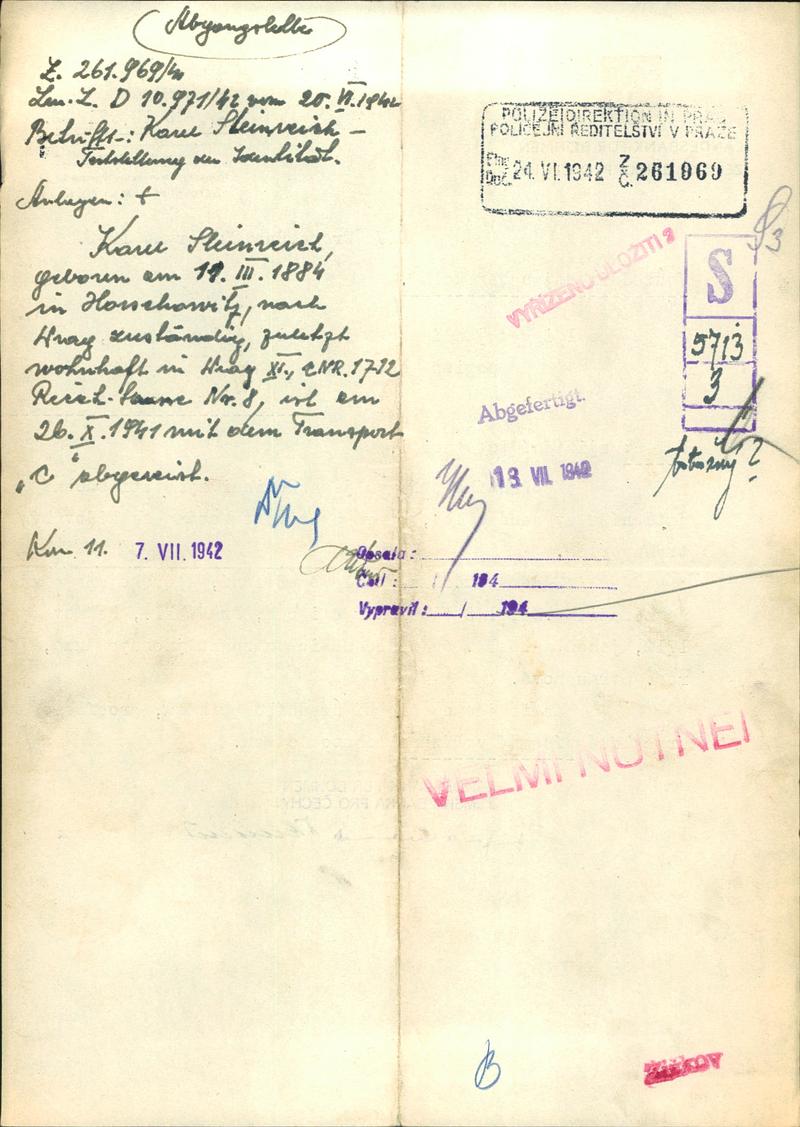 Z. 261.969/42
Zur Z. D 10.971/42 vom 20. VI. 1942
Betrifft: Karel Steinreich –
Feststellung der Identität.
Anlagen: +
Karel Steinreich,
geboren am 19. III. 1884
in Horschowitz, nach
Prag zuständig, zuletzt
wohnhaft in Prag XI., CNR. 1712
Nr. 8, ist am
26. X. 1941 mit dem Transport
„C“ abgereist.
7. VII. 1942
POLIZEIDIREKTION IN PRAG
POLICEJNÍ ŘEDITELSTVÍ V PRAZE
24. VI. 1942 Z Č. 261969
VYŘÍZENO ULOŽITI
S
5713
3
Abgefertigt.
13. VII. 1942
Opsala:
Četl: / 194
Vypravil: / 194
VELMI NUTNÉ!
B
ŽIŽKOV